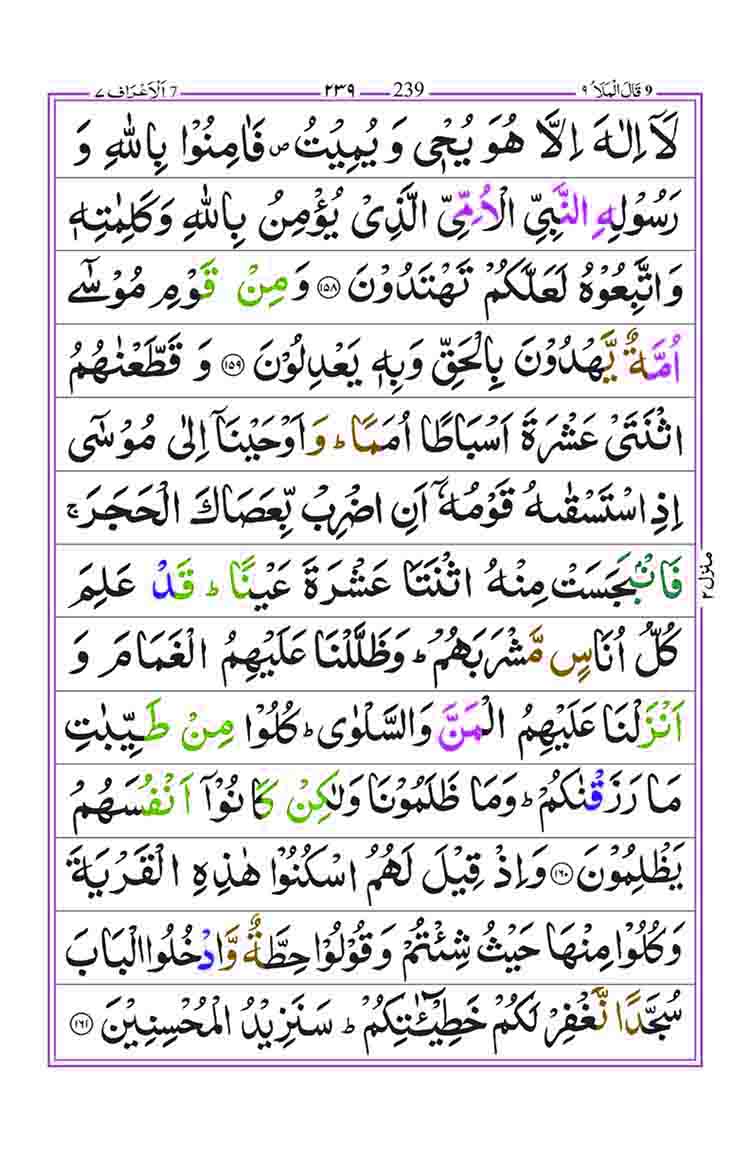 7 اَلْاَعْرَاف ٧ ٢٣٩ 239 9 قَالَ الْمَلَاُ ٩
لَاۤ اِلٰهَ اِلَّا هُوَ يُحْيٖ وَ يُمِيْتُ ۪ فَاٰمِنُوْا بِاللّٰهِ وَ
رَسُوْلِهِ النَّبِيِّ الْاُمِّيِّ الَّذِيْ يُؤْمِنُ بِاللّٰهِ وَكَلِمٰتِهٖ
وَاتَّبِعُوْهُ لَعَلَّكُمْ تَهْتَدُوْنَ ١٥٨ وَمِنْ قَوْمِ مُوْسٰۤى
اُمَّةٌ يَّهْدُوْنَ بِالْحَقِّ وَبِهٖ يَعْدِلُوْنَ ١٥٩ وَ قَطَّعْنٰهُمُ
اثْنَتَيْ عَشْرَةَ اَسْبَاطًا اُمَمًا ؕ وَاَوْحَيْنَاۤ اِلٰى مُوْسٰۤى
اِذِ اسْتَسْقٰىهُ قَوْمُهٗۤ اَنِ اضْرِبْ بِّعَصَاكَ الْحَجَرَ ۚ
فَانْۢبَجَسَتْ مِنْهُ اثْنَتَا عَشْرَةَ عَيْنًا ؕ قَدْ عَلِمَ
كُلُّ اُنَاسٍ مَّشْرَبَهُمْ ؕ وَظَلَّلْنَا عَلَيْهِمُ الْغَمَامَ وَ
اَنْزَلْنَا عَلَيْهِمُ الْمَنَّ وَالسَّلْوٰى ؕ كُلُوْا مِنْ طَيِّبٰتِ
مَا رَزَقْنٰكُمْ ؕ وَمَا ظَلَمُوْنَا وَلٰكِنْ كَانُوْۤا اَنْفُسَهُمْ
يَظْلِمُوْنَ ١٦٠ وَاِذْ قِيْلَ لَهُمُ اسْكُنُوْا هٰذِهِ الْقَرْيَةَ
وَكُلُوْا مِنْهَا حَيْثُ شِئْتُمْ وَقُوْلُوْا حِطَّةٌ وَّادْخُلُوا الْبَابَ
سُجَّدًا نَّغْفِرْ لَكُمْ خَطِيْٓـٰٔتِكُمْ ؕ سَنَزِيْدُ الْمُحْسِنِيْنَ ١٦١
منزل ٢